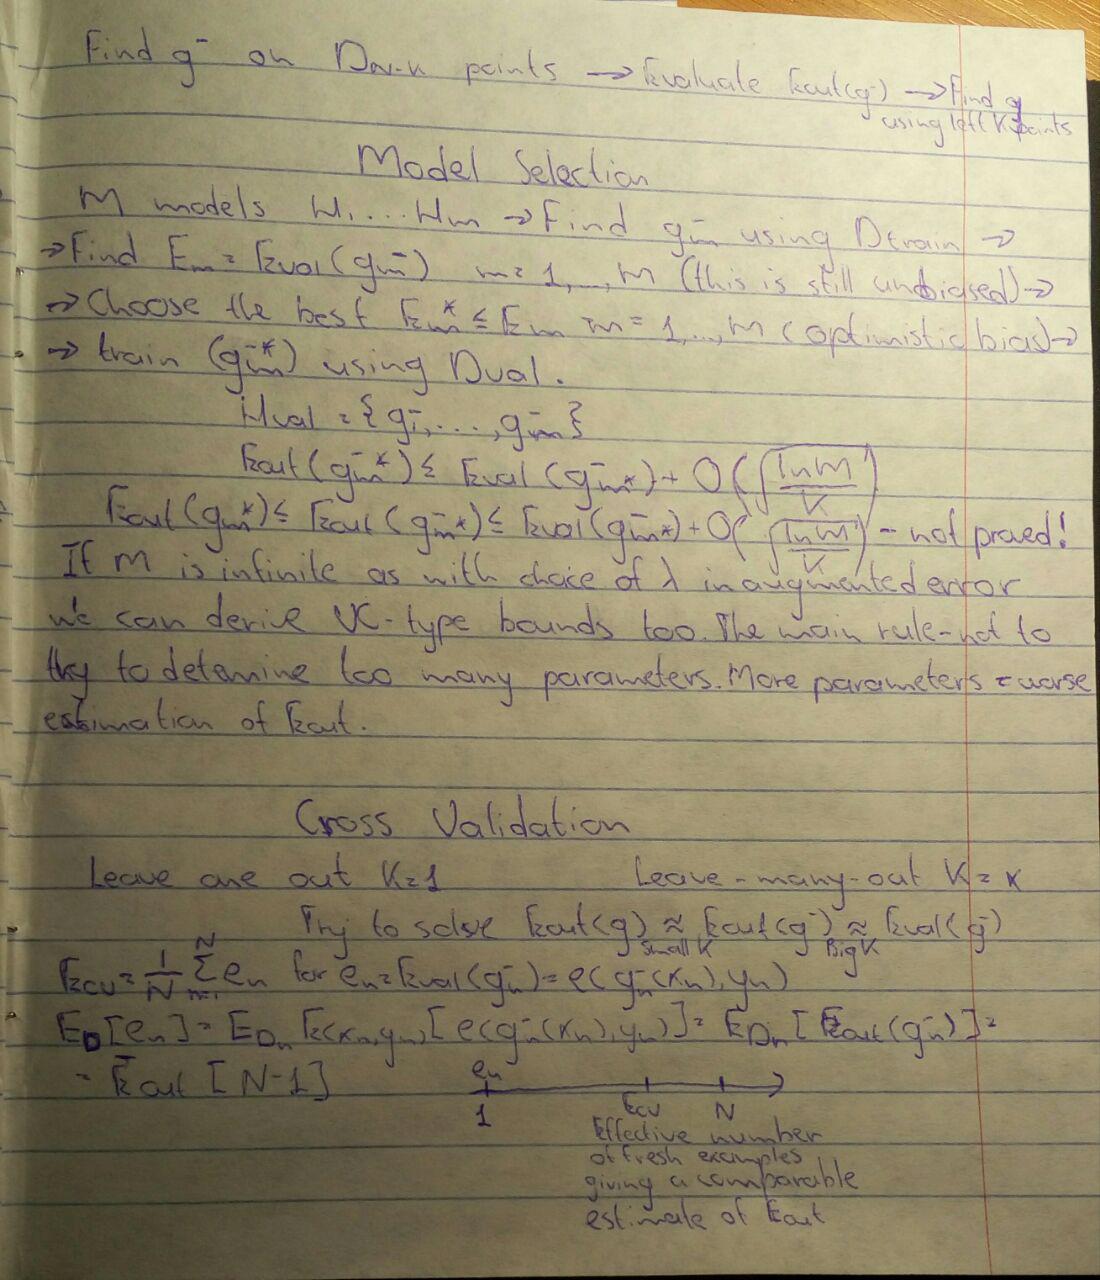 Find g⁻ on D_{N-K} points → Evaluate Eout(g⁻) → Find g
using left K points
Model Selection
M models H₁....Hm → Find gm⁻ using Dtrain →
→ Find Em = Eval(gm⁻) m=1,...,M (this is still unbiased) →
→ Choose the best Em* ≤ Em m=1,..,M (optimistic bias) →
→ train (gm⁻*) using Dval.
Hval = {g₁⁻,...,gm⁻}
Eout(gm⁻*) ≤ Eval(gm⁻*) + O(√(lnM/K))
Eout(gm*) ≤ Eout(gm⁻*) ≤ Eval(gm⁻*) + O(√(lnM/K)) - not proved!
If M is infinite as with choice of λ in augmented error
we can derive VC-type bounds too. The main rule - not to
try to detemine too many parameters. More parameters = worse
estimation of Eout.
Cross Validation
Leave one out K=1 Leave-many-out K=K
Try to solve Eout(g) ≈ Eout(g⁻) ≈ Eval(g⁻)
small K Big K
Ecv = 1/N Σ_{n=1}^{N} en for en = Eval(gn⁻) = e(gn⁻(xn), yn)
E_D[en] = E_Dn E(xn,yn)[e(gn⁻(xn), yn)] = E_Dn[Eout(gn⁻)] =
= Ēout[N-1]
en
1 Ecv N
Effective number
of fresh examples
giving a comparable
estimate of Eout